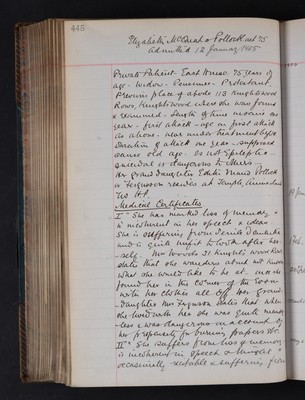 445
Elizabeth McQueat or Pollock aet 75
Admitted 12 January 1905
Private Patient East House. 75 years of
age. Widow. Pensioner. Protestant
Previous place of abode 113 Knightswood
Rows, Knightswood where she was found
& examined. Length of time insane one
year. first attack age on first attack
as above. never under treatment before
Duration of attack one year. supposed
cause old age. Is not Epileptic
suicidal or dangerous to others.
Her Grand Daughter Edith Pollock
or Ferguson resides at Temple, Anniesland
Medical Certificates
I° She has marked loss of memory,
is incoherent in her speech & ideas
She is suffering from Senile Dementia
and is quite unfit to look after her-
self. Mrs Woods 31 Knights wood Rows
states that she wanders about not knowing
what she would like to be at. 
found her in the corner of the room
with her clothes all off her Grand
Daughter Mrs Ferguson states that when
she lived with her she was quite memory
less & was dangerous on account of
her propensity for burning papers &c.
II° She suffers from loss of memory
is incoherent in speech & thought
occasionally excitable & suffering from